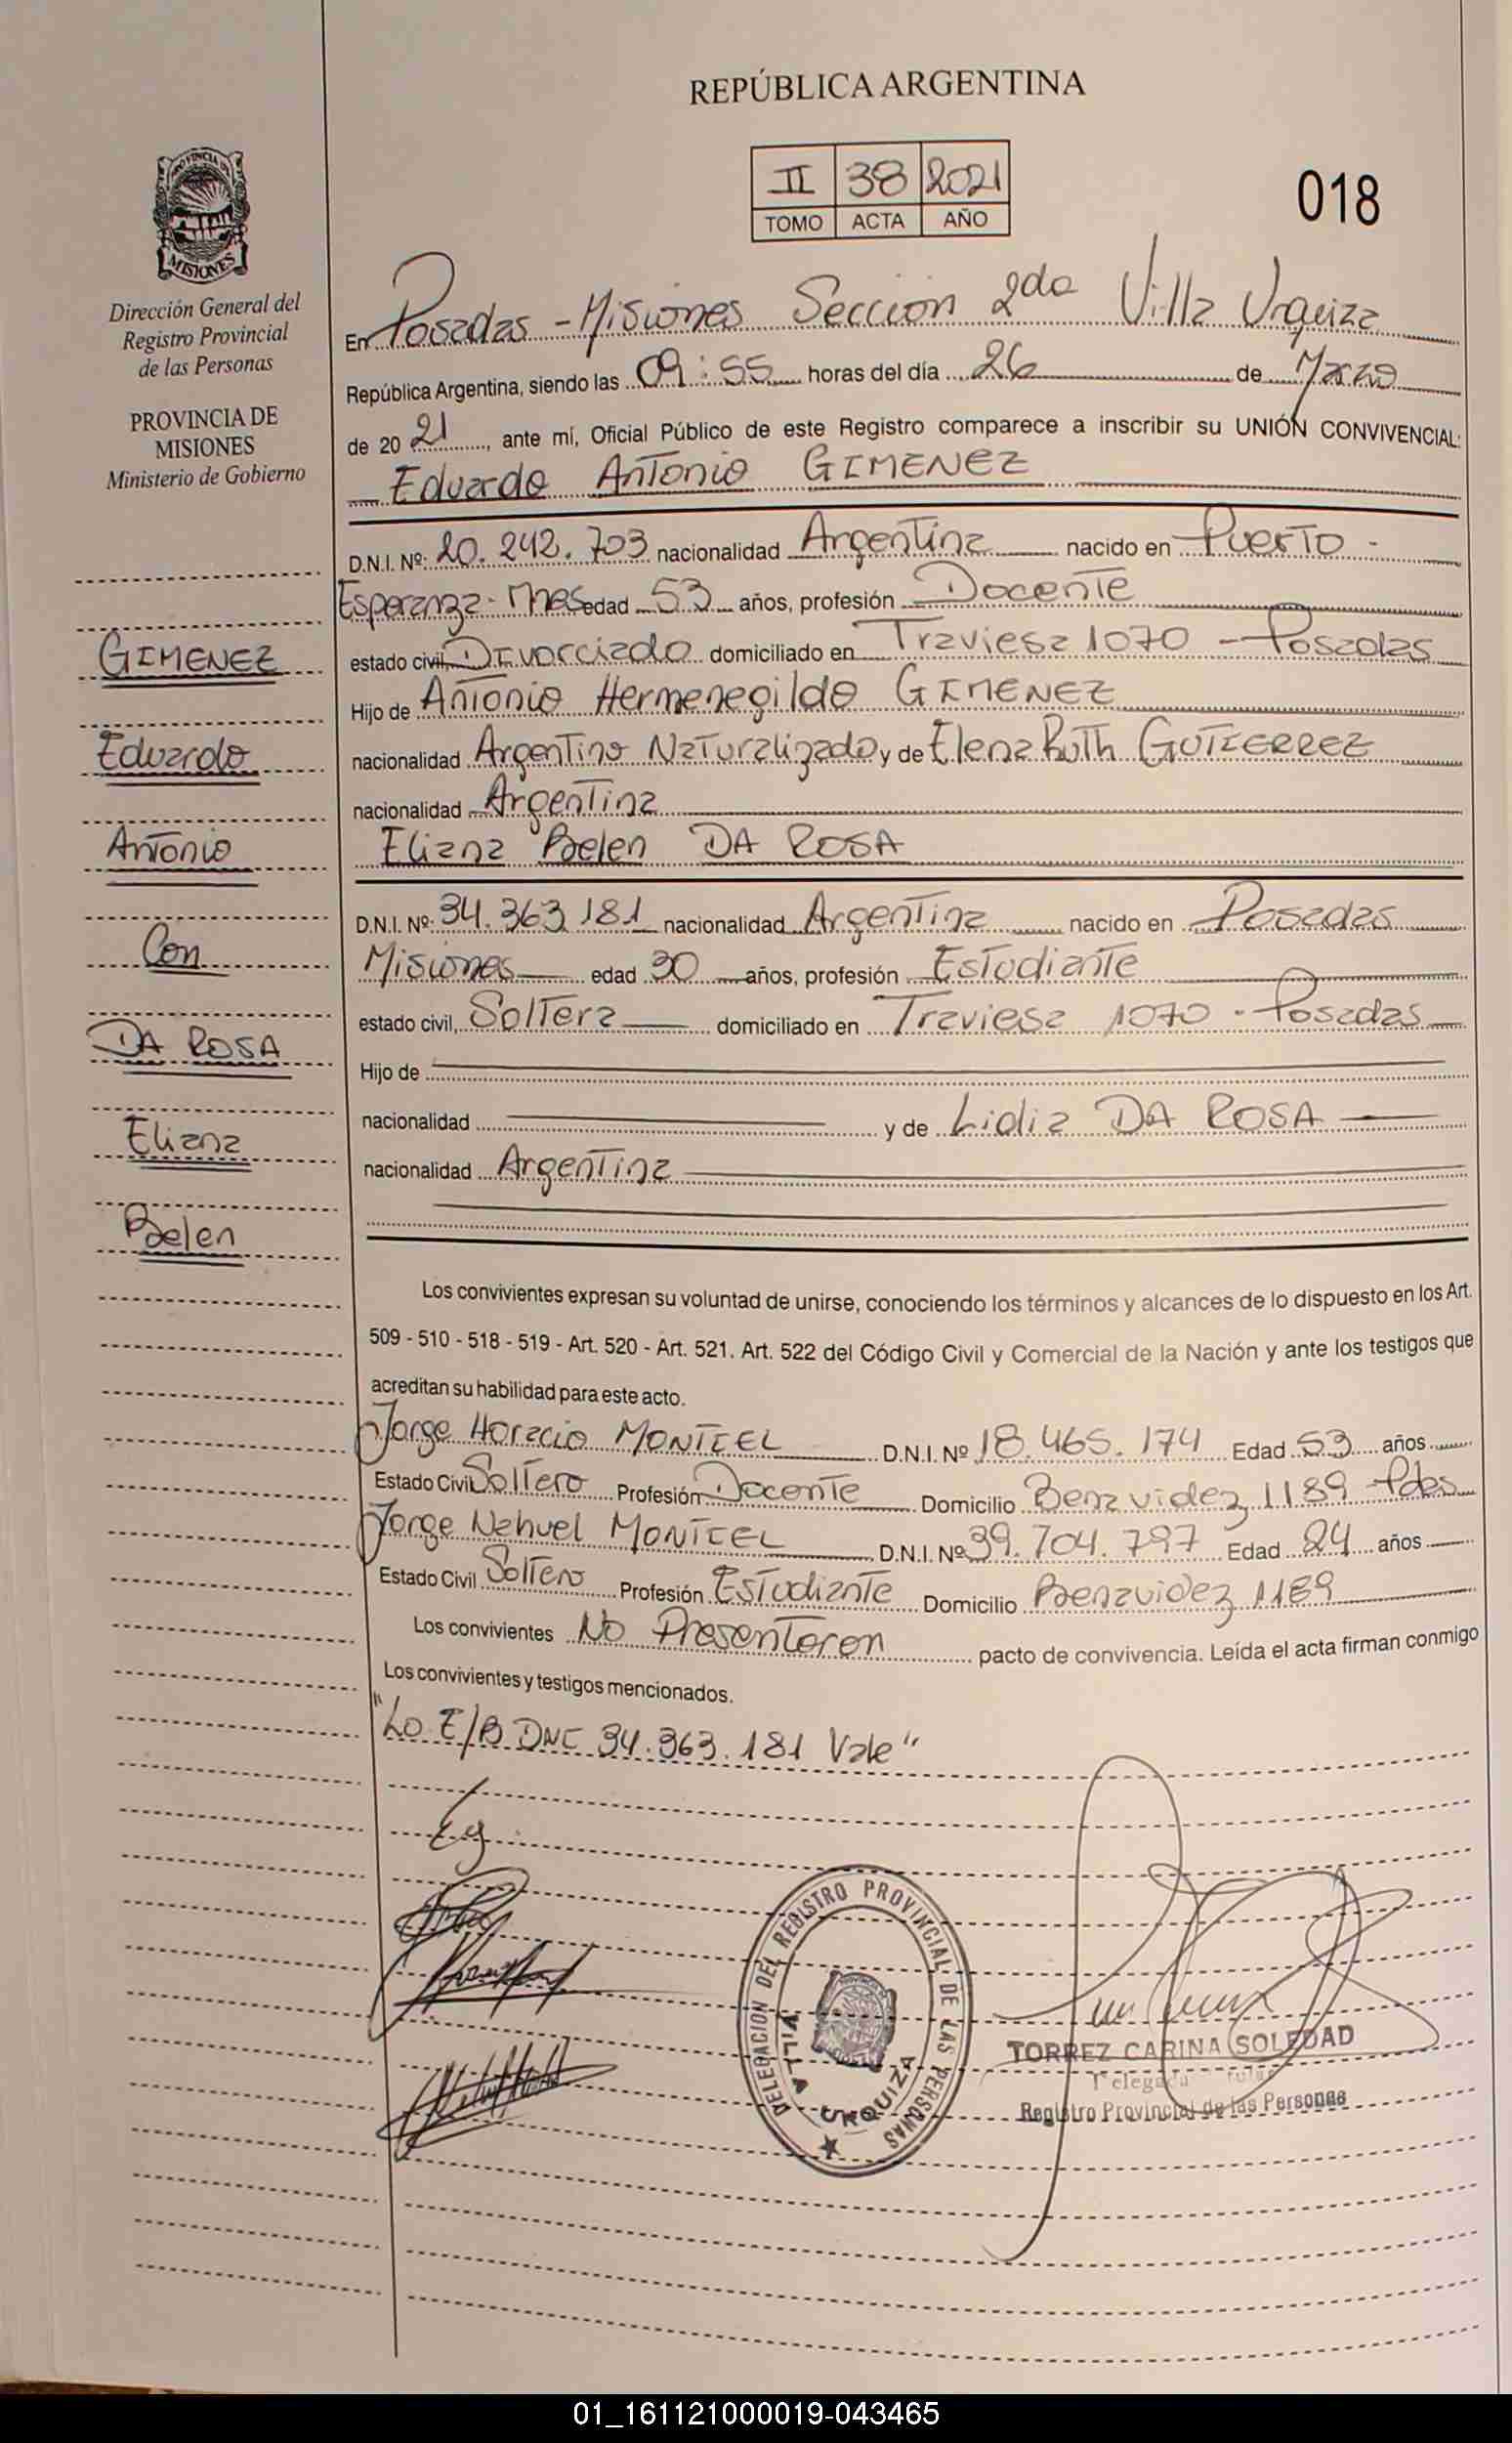 REPÚBLICA ARGENTINA
II 38 2021
TOMO ACTA AÑO
018
PROVINCIA DE
MISIONES
Dirección General del
Registro Provincial
de las Personas
PROVINCIA DE
MISIONES
Ministerio de Gobierno
GIMENEZ
Eduardo
Antonio
Con
DA ROSA
Eliana
Belen
En Posadas - Misiones Sección 2da Villa Urquiza
República Argentina, siendo las 09:55 horas del día 26 de Marzo
de 20 21, ante mí, Oficial Público de este Registro comparece a inscribir su UNIÓN CONVIVENCIAL:
Eduardo Antonio GIMENEZ
D.N.I. Nº: 20.242.703 nacionalidad Argentina nacido en Puerto -
Esperanza - Mnes edad 53 años, profesión Docente
estado civil, Divorciado domiciliado en Traviesa 1070 - Posadas
Hijo de Antonio Hermenegildo GIMENEZ
nacionalidad Argentino Naturalizado y de Elena Ruth GUTIERREZ
nacionalidad Argentina
Eliana Belen DA ROSA
D.N.I. Nº: 34.363.181 nacionalidad Argentina nacido en Posadas
Misiones edad 30 años, profesión Estudiante
estado civil, Soltera domiciliado en Traviesa 1070 - Posadas
Hijo de
nacionalidad y de Lidia DA ROSA
nacionalidad Argentina
Los convivientes expresan su voluntad de unirse, conociendo los términos y alcances de lo dispuesto en los Art.
509 - 510 - 518 - 519 - Art. 520 - Art. 521. Art. 522 del Código Civil y Comercial de la Nación y ante los testigos que
acreditan su habilidad para este acto.
Jorge Horacio MONTIEL D.N.I. Nº 18.465.174 Edad 53 años
Estado Civil Soltero Profesión Docente Domicilio Benavidez 1189 - Pdas
Jorge Nahuel MONTIEL D.N.I. Nº 39.704.797 Edad 24 años
Estado Civil Soltero Profesión Estudiante Domicilio Benavidez 1189
Los convivientes No Presentaron pacto de convivencia. Leída el acta firman conmigo
Los convivientes y testigos mencionados.
"Lo E/B DNI 34.363.181 Vale"
DELEGACION DEL REGISTRO PROVINCIAL DE LAS PERSONAS
VILLA URQUIZA
TORREZ CARINA SOLEDAD
Registro Provincial de las Personas
01_161121000019-043465